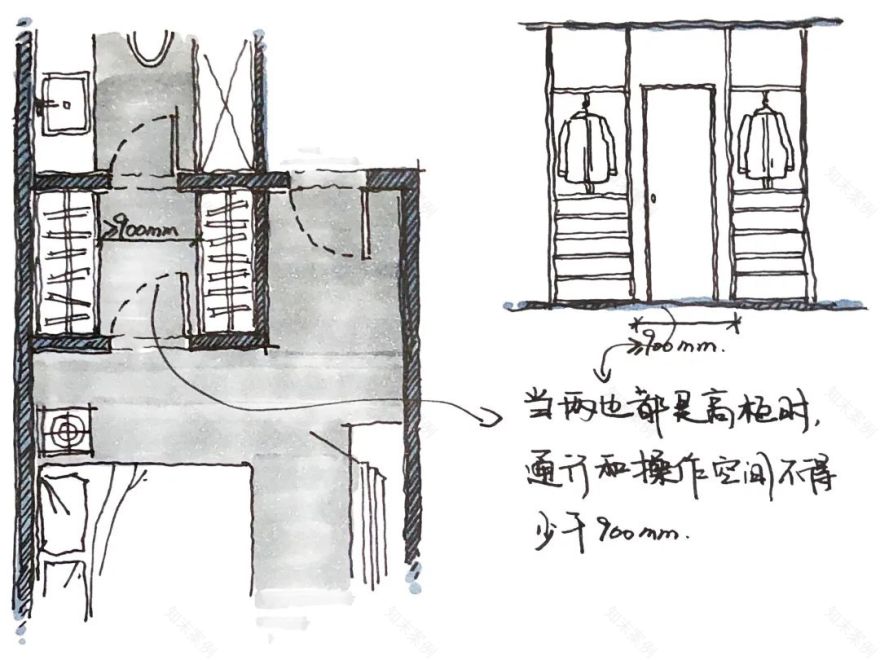 ≥900mm
≥900mm.
当两边都是高柜时,
通行和操作空间不得
少于900mm.
知末案例
知末案例
知末案例
知末案例